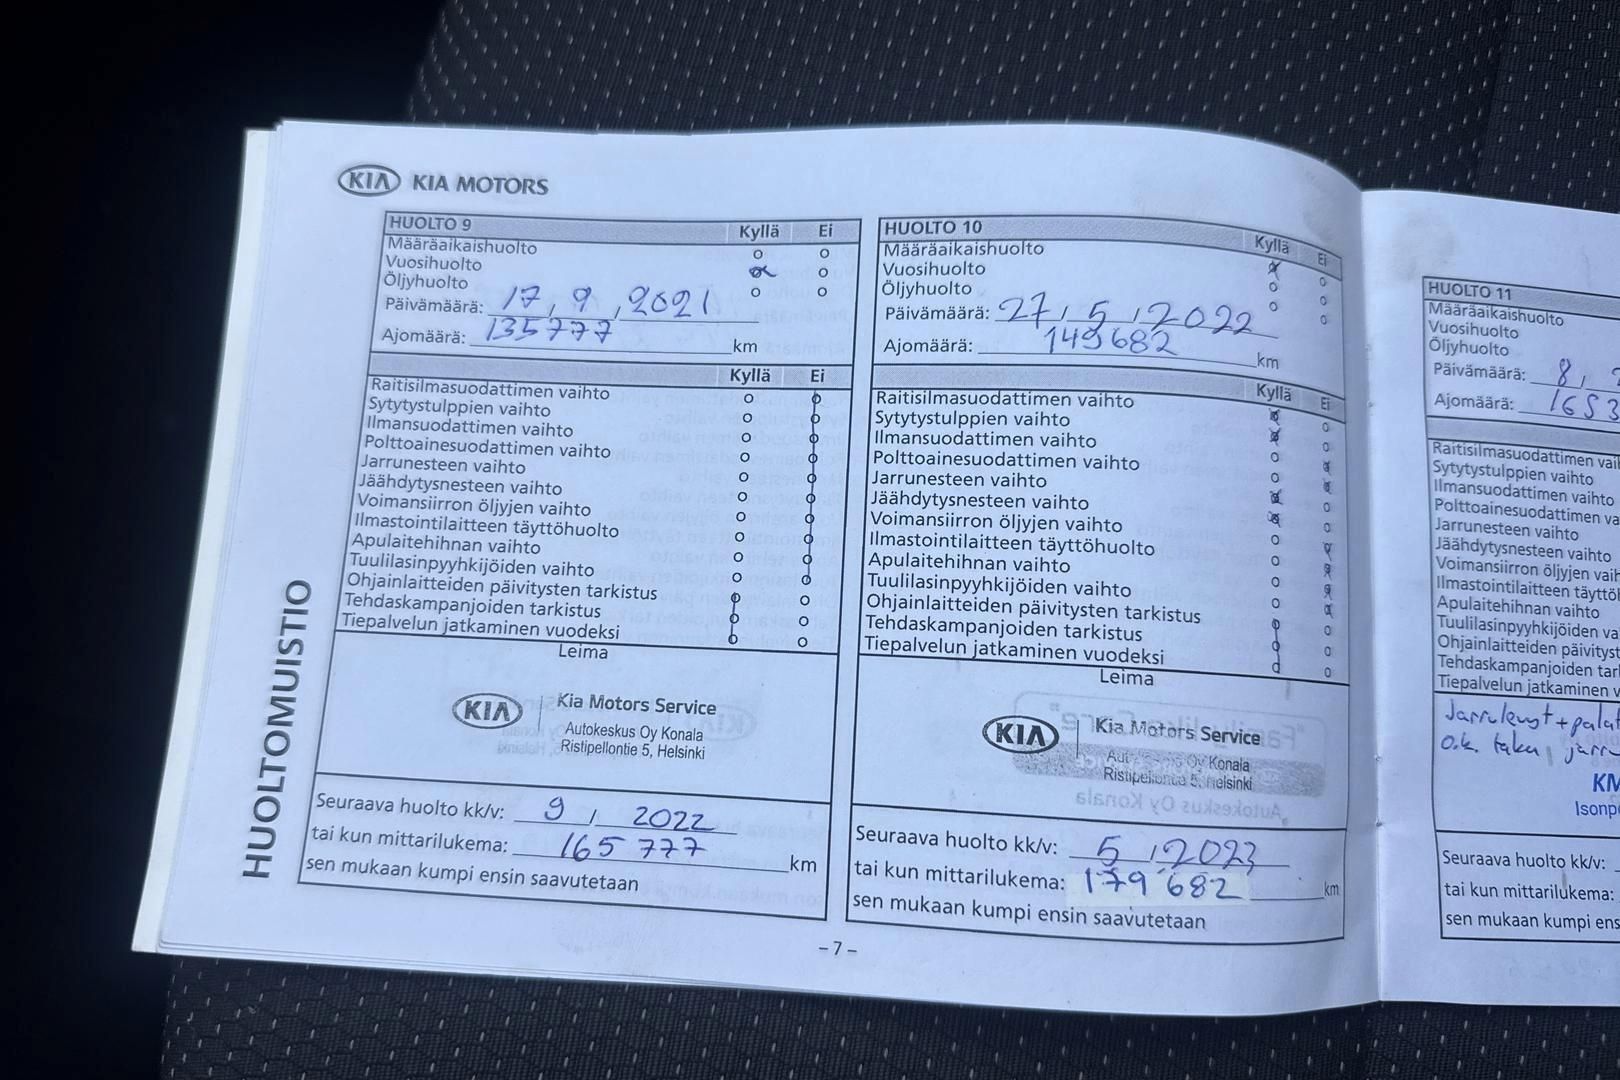 KIA KIA MOTORS
HUOLTOMUISTIO
HUOLTO 9 Kyllä Ei
Määräaikaishuolto
Vuosihuolto
Öljyhuolto
Päivämäärä: 17, 9, 2021
Ajomäärä: 135777 km
Kyllä Ei
Raitisilmasuodattimen vaihto
Sytytystulppien vaihto
Ilmansuodattimen vaihto
Polttoainesuodattimen vaihto
Jarrunesteen vaihto
Jäähdytysnesteen vaihto
Voimansiirron öljyjen vaihto
Ilmastointilaitteen täyttöhuolto
Apulaitehihnan vaihto
Tuulilasinpyyhkijöiden vaihto
Ohjainlaitteiden päivitysten tarkistus
Tehdaskampanjoiden tarkistus
Tiepalvelun jatkaminen vuodeksi
Leima
KIA Kia Motors Service
Autokeskus Oy Konala
Ristipellontie 5, Helsinki
Seuraava huolto kk/v: 9 / 2022
tai kun mittarilukema: 165 777 km
sen mukaan kumpi ensin saavutetaan
HUOLTO 10 Kyllä Ei
Määräaikaishuolto
Vuosihuolto
Öljyhuolto
Päivämäärä: 27, 5, 2022
Ajomäärä: 149682 km
Kyllä Ei
Raitisilmasuodattimen vaihto
Sytytystulppien vaihto
Ilmansuodattimen vaihto
Polttoainesuodattimen vaihto
Jarrunesteen vaihto
Jäähdytysnesteen vaihto
Voimansiirron öljyjen vaihto
Ilmastointilaitteen täyttöhuolto
Apulaitehihnan vaihto
Tuulilasinpyyhkijöiden vaihto
Ohjainlaitteiden päivitysten tarkistus
Tehdaskampanjoiden tarkistus
Tiepalvelun jatkaminen vuodeksi
Leima
KIA Kia Motors Service
Oy Konala
Ristipellontie 5, Helsinki
Seuraava huolto kk/v: 5, 2023
tai kun mittarilukema: 179 682 km
sen mukaan kumpi ensin saavutetaan
- 7 -
HUOLTO 11
Määräaikaishuolto
Vuosihuolto
Öljyhuolto
Päivämäärä: 8,
Ajomäärä: 1653
Raitisilmasuodattimen vai
Sytytystulppien vaihto
Ilmansuodattimen vaihto
Polttoainesuodattimen va
Jarrunesteen vaihto
Jäähdytysnesteen vaihto
Voimansiirron öljyjen vaih
Ilmastointilaitteen täyttöh
Apulaitehihnan vaihto
Tuulilasinpyyhkijöiden va
Ohjainlaitteiden päivityst
Tehdaskampanjoiden tar
Tiepalvelun jatkaminen v
o.k. taka jarru
KM
Isonp
Seuraava huolto kk/v:
tai kun mittarilukema:
sen mukaan kumpi ens